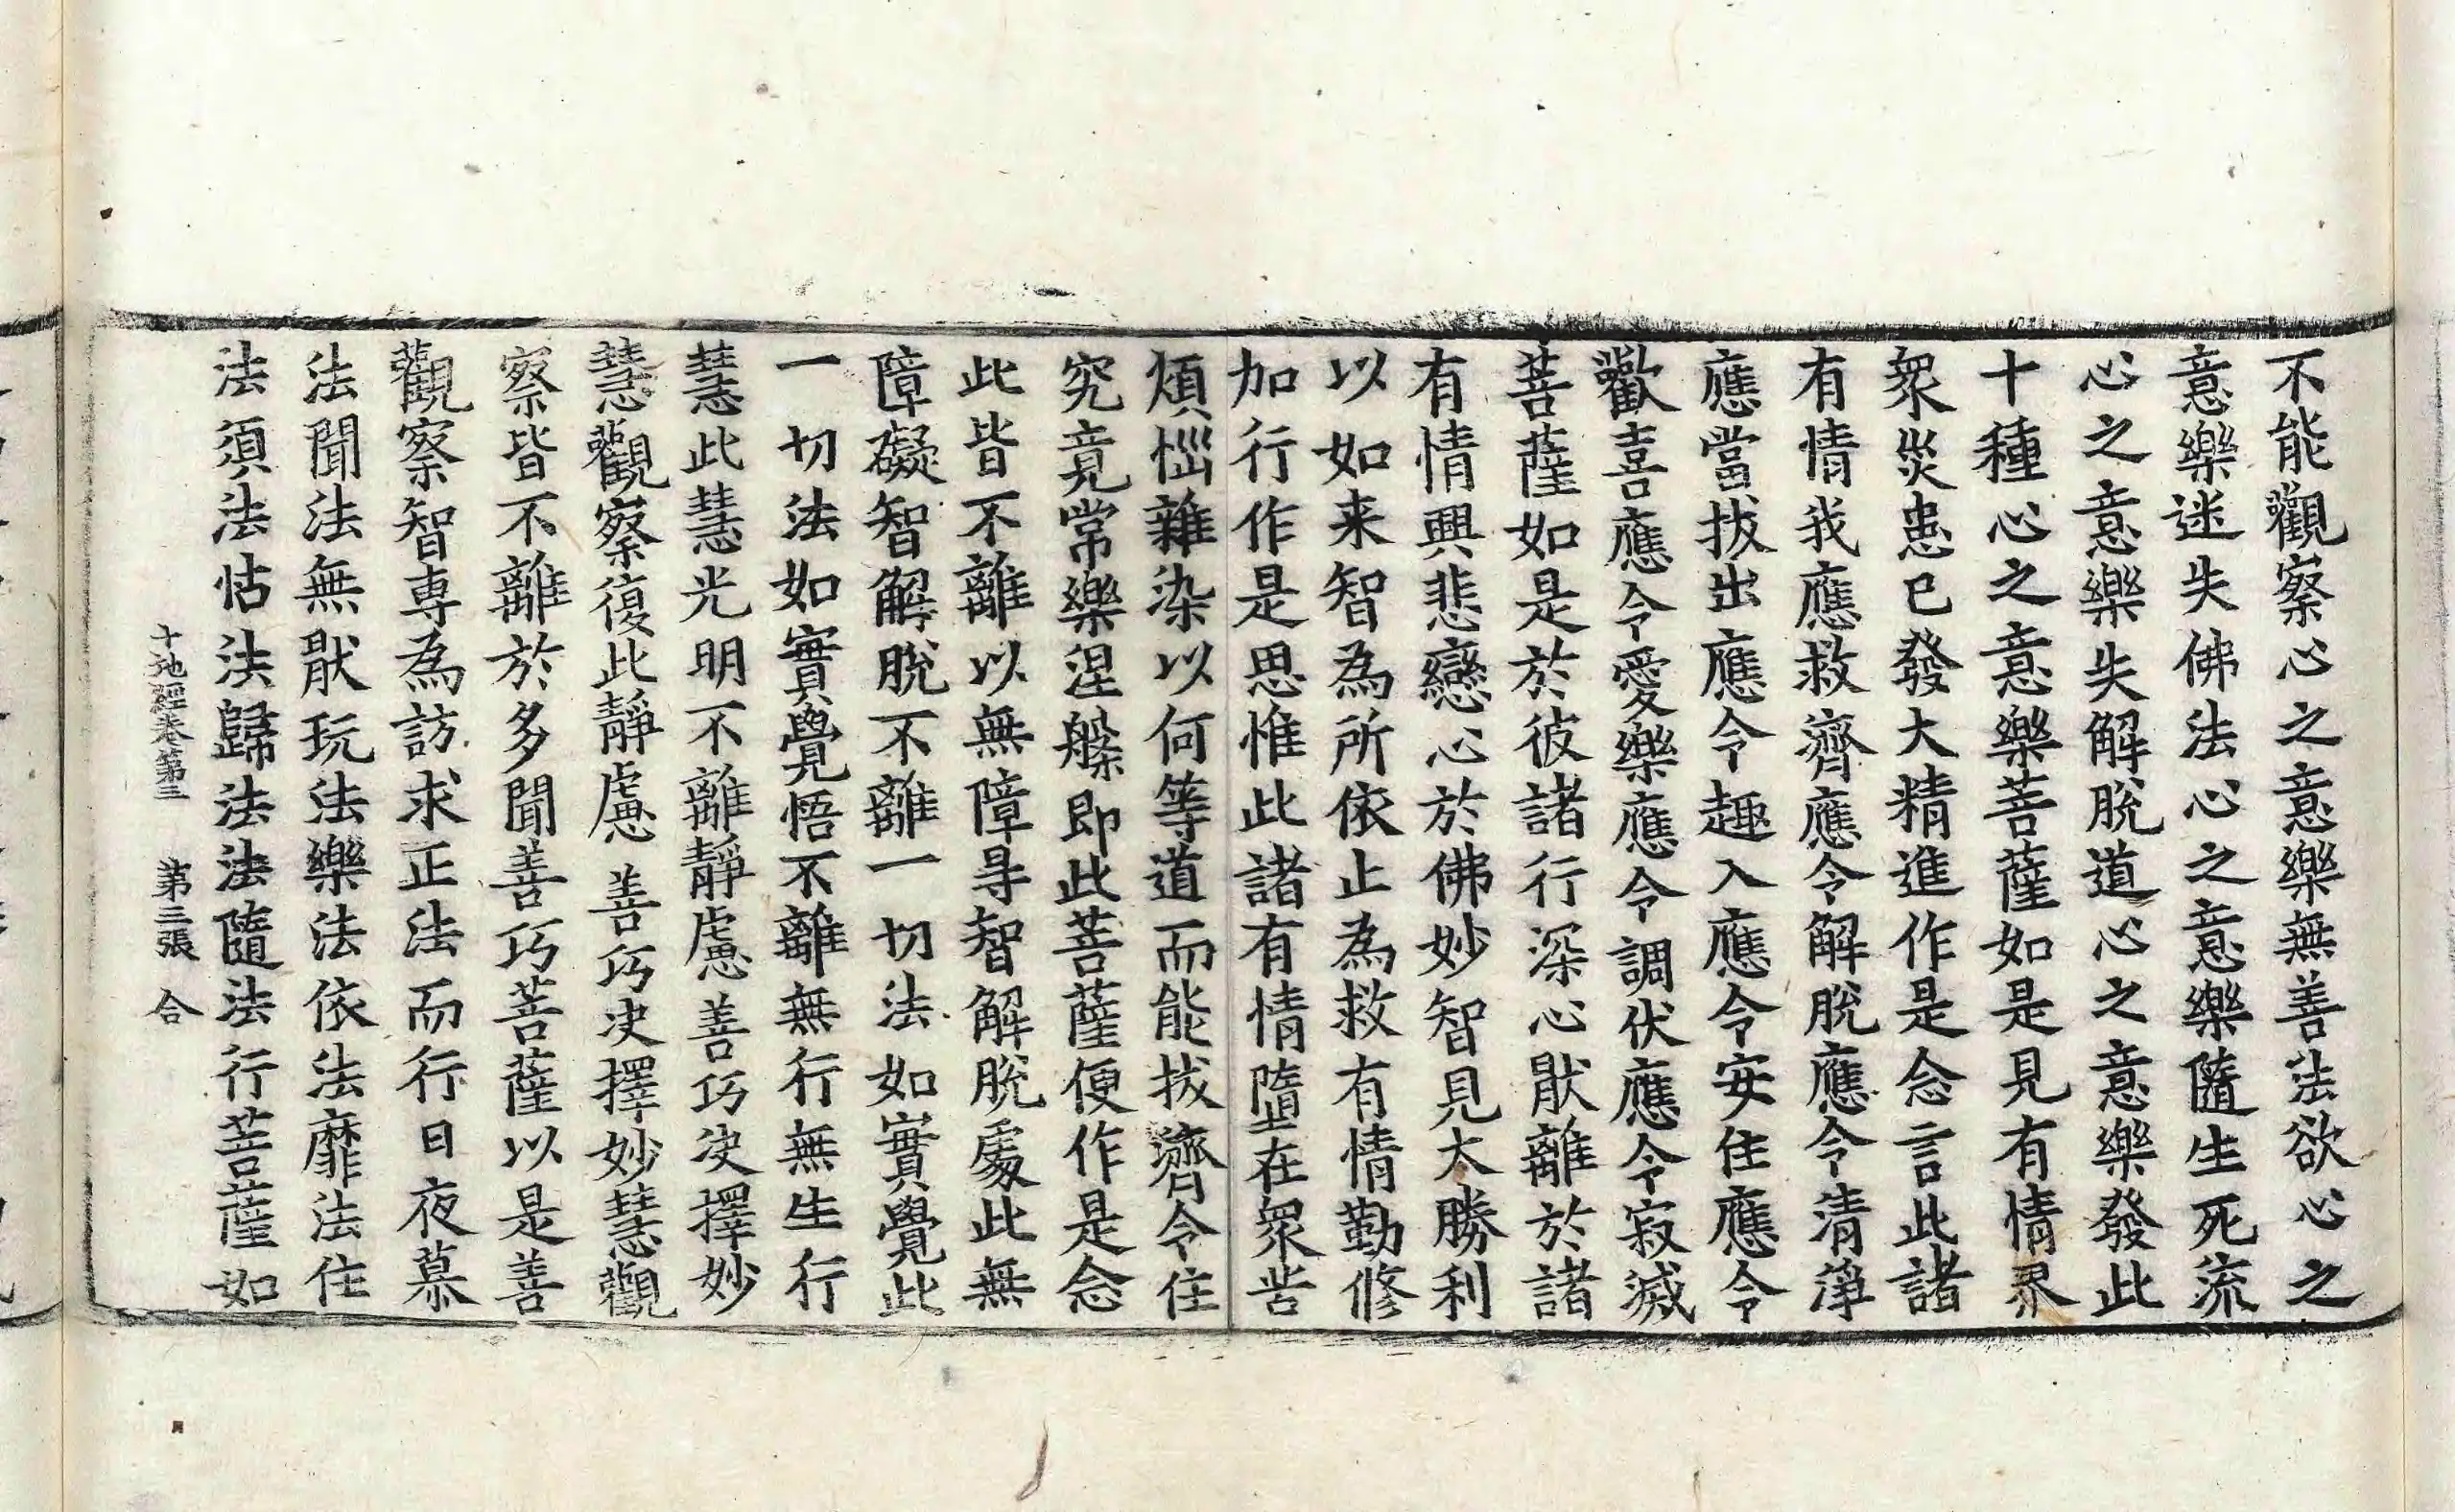 不能觀察心之意樂無善法欲心之
意樂迷失佛法心之意樂隨生死流
心之意樂失解脫道心之意樂發此
十種心之意樂菩薩如是見有情界
衆災患已發大精進作是念言此諸
有情我應救濟應令解脫應令清淨
應當拔出應令趣入應令安住應令
歡喜應令愛樂應令調伏應令寂滅
菩薩如是於彼諸行深心猒離於諸
有情興悲戀心於佛妙智見太勝利
以如来智為所依止為救有情勤修
加行作是思惟此諸有情墮在衆苦
煩惱雜染以何等道而能拔濟令住
究竟常樂涅槃即此菩薩便作是念
此皆不離以無障㝵智解脫處此無
障礙智解脫不離一切法如實覺此
一切法如實覺悟不離無行無生行
慧此慧光明不離靜慮善巧决擇妙
慧觀察復此靜慮善巧决擇妙慧觀
察皆不離於多聞善巧菩薩以是善
觀察智専為訪求正法而行日夜慕
法聞法無猒玩法樂法依法靡法住
法須法怙法歸法法隨法行菩薩如
十地經卷第三 第三張 合